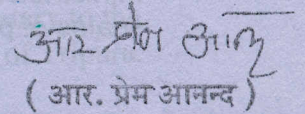 आर प्रेम आनन्द
( आर. प्रेम आनन्द )